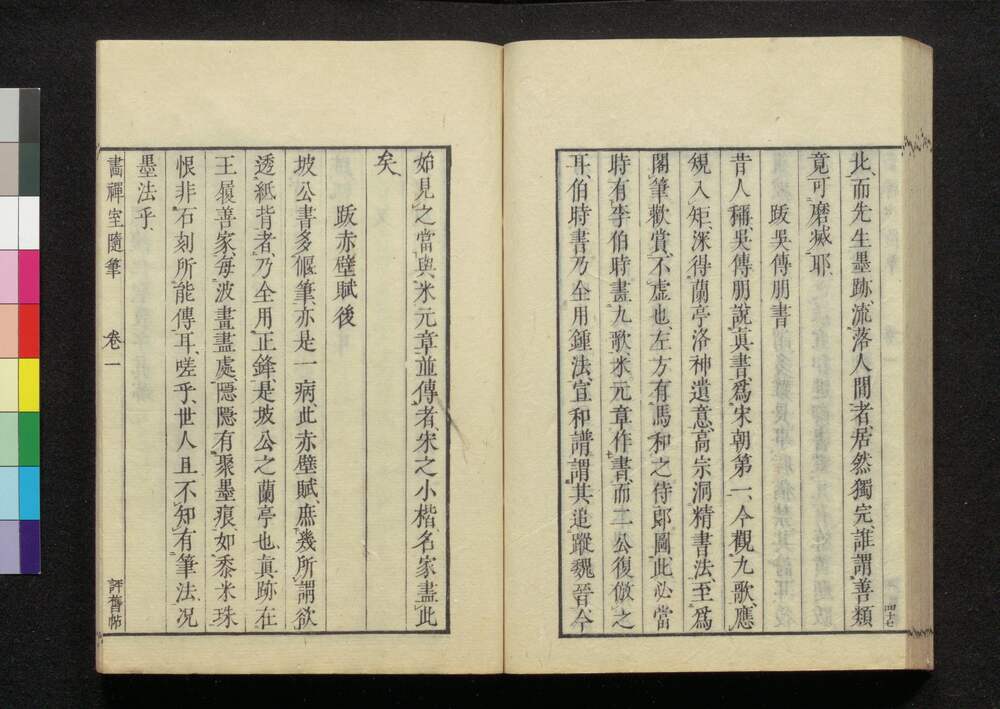 北、而先生墨跡、流落人間者、居然獨完、誰謂善類
竟可磨滅耶、
跋吳傳朋書
昔人稱吳傳朋說真書、爲宋朝第一、今觀九歌、應
規入矩、深得蘭亭洛神遺意、高宗洞精書法、至爲
閣筆歎賞、不虛也、左方有馬和之侍郎圖、此必當
時有李伯時畫九歌、米元章作書、而二公復倣之
耳、伯時書乃全用鍾法、宣和譜謂其追蹤魏晉、今
四十七
始見之、當與米元章並傳者、宋之小楷、名家盡此
矣、
跋赤壁賦後
坡公書多偃筆、亦是一病、此赤壁賦、庶幾所謂欲
透紙背者、乃全用正鋒、是坡公之蘭亭也、真跡在
王履善家、每波畫盡處、隱隱有聚墨痕、如黍米珠
恨非石刻所能傳耳、嗟乎、世人且不知有筆法、况
墨法乎、
畫禪室隨筆 卷一 評舊帖